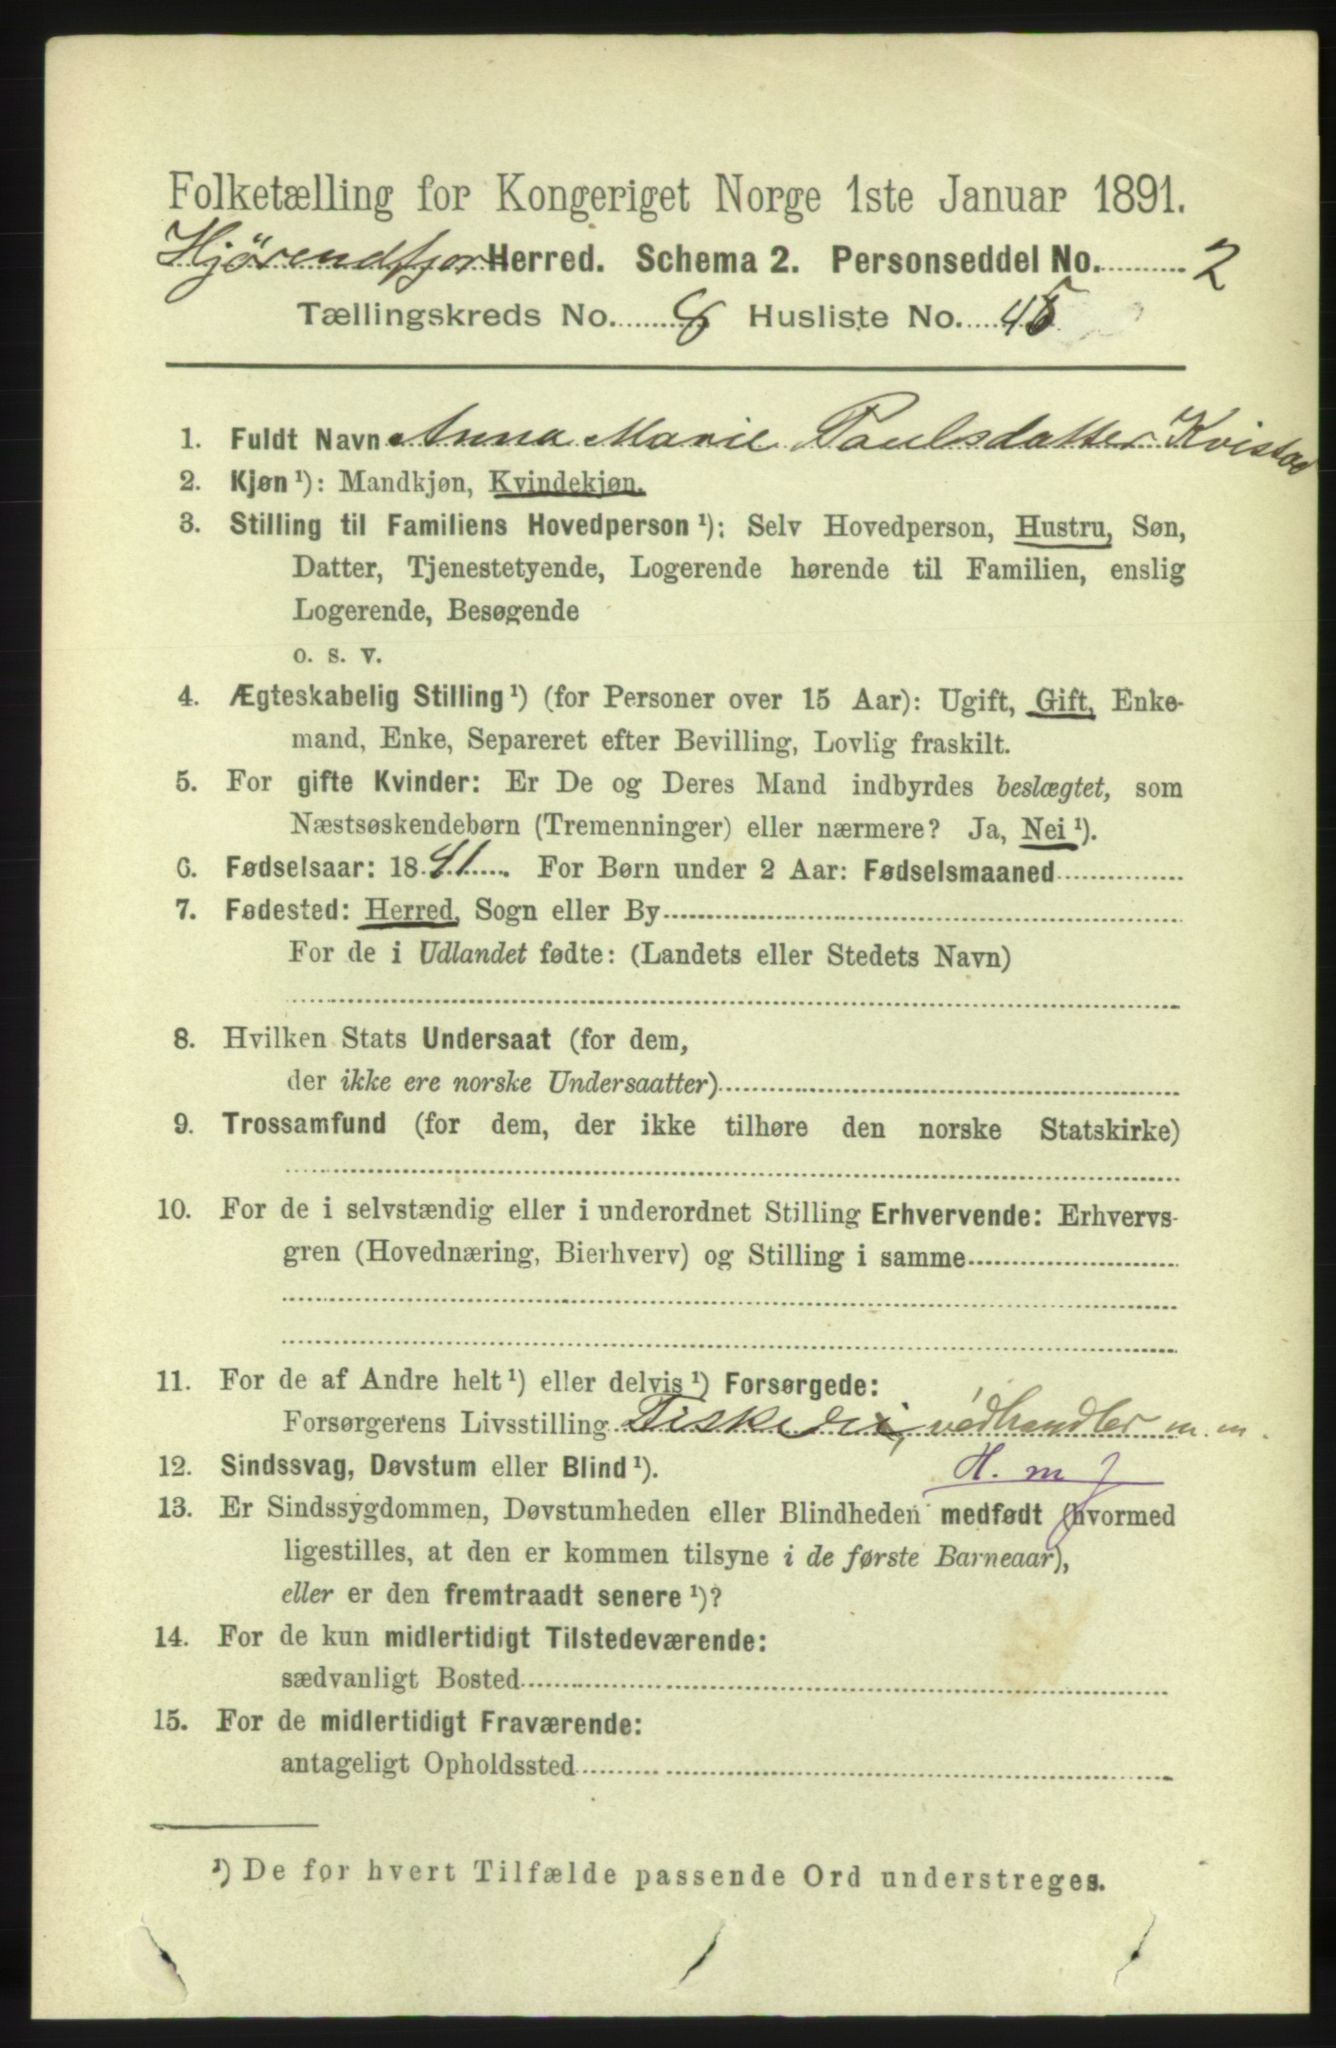 Folketælling for Kongeriget Norge 1ste Januar 1891.
Hjørendfjord Herred. Schema 2. Personseddel No. 2
Tællingskreds No. 8 Husliste No. 45
1. Fuldt Navn Anna Marie Paulsdatter Kvistad
2. Kjøn ¹): Mandkjøn, Kvindekjøn.
3. Stilling til Familiens Hovedperson ¹): Selv Hovedperson, Hustru, Søn,
Datter, Tjenestetyende, Logerende hørende til Familien, enslig
Logerende, Besøgende
o. s. v.
4. Ægteskabelig Stilling ¹) (for Personer over 15 Aar): Ugift, Gift, Enke-
mand, Enke, Separeret efter Bevilling, Lovlig fraskilt.
5. For gifte Kvinder: Er De og Deres Mand indbyrdes beslægtet, som
Næstsøskendebørn (Tremenninger) eller nærmere? Ja, Nei ¹).
6. Fødselsaar: 1841. For Børn under 2 Aar: Fødselsmaaned
7. Fødested: Herred, Sogn eller By
For de i Udlandet fødte: (Landets eller Stedets Navn)
8. Hvilken Stats Undersaat (for dem,
der ikke ere norske Undersaatter)
9. Trossamfund (for dem, der ikke tilhøre den norske Statskirke)
10. For de i selvstændig eller i underordnet Stilling Erhvervende: Erhvervs-
gren (Hovednæring, Bierhverv) og Stilling i samme
11. For de af Andre helt ¹) eller delvis ¹) Forsørgede:
Forsørgerens Livsstilling Fiskeri, vedhandler m. m.
12. Sindssvag, Døvstum eller Blind ¹). H. m
13. Er Sindssygdommen, Døvstumheden eller Blindheden medfødt (hvormed
ligestilles, at den er kommen tilsyne i de første Barneaar),
eller er den fremtraadt senere ¹)?
14. For de kun midlertidigt Tilstedeværende:
sædvanligt Bosted
15. For de midlertidigt Fraværende:
antageligt Opholdssted
¹) De for hvert Tilfælde passende Ord understreges.